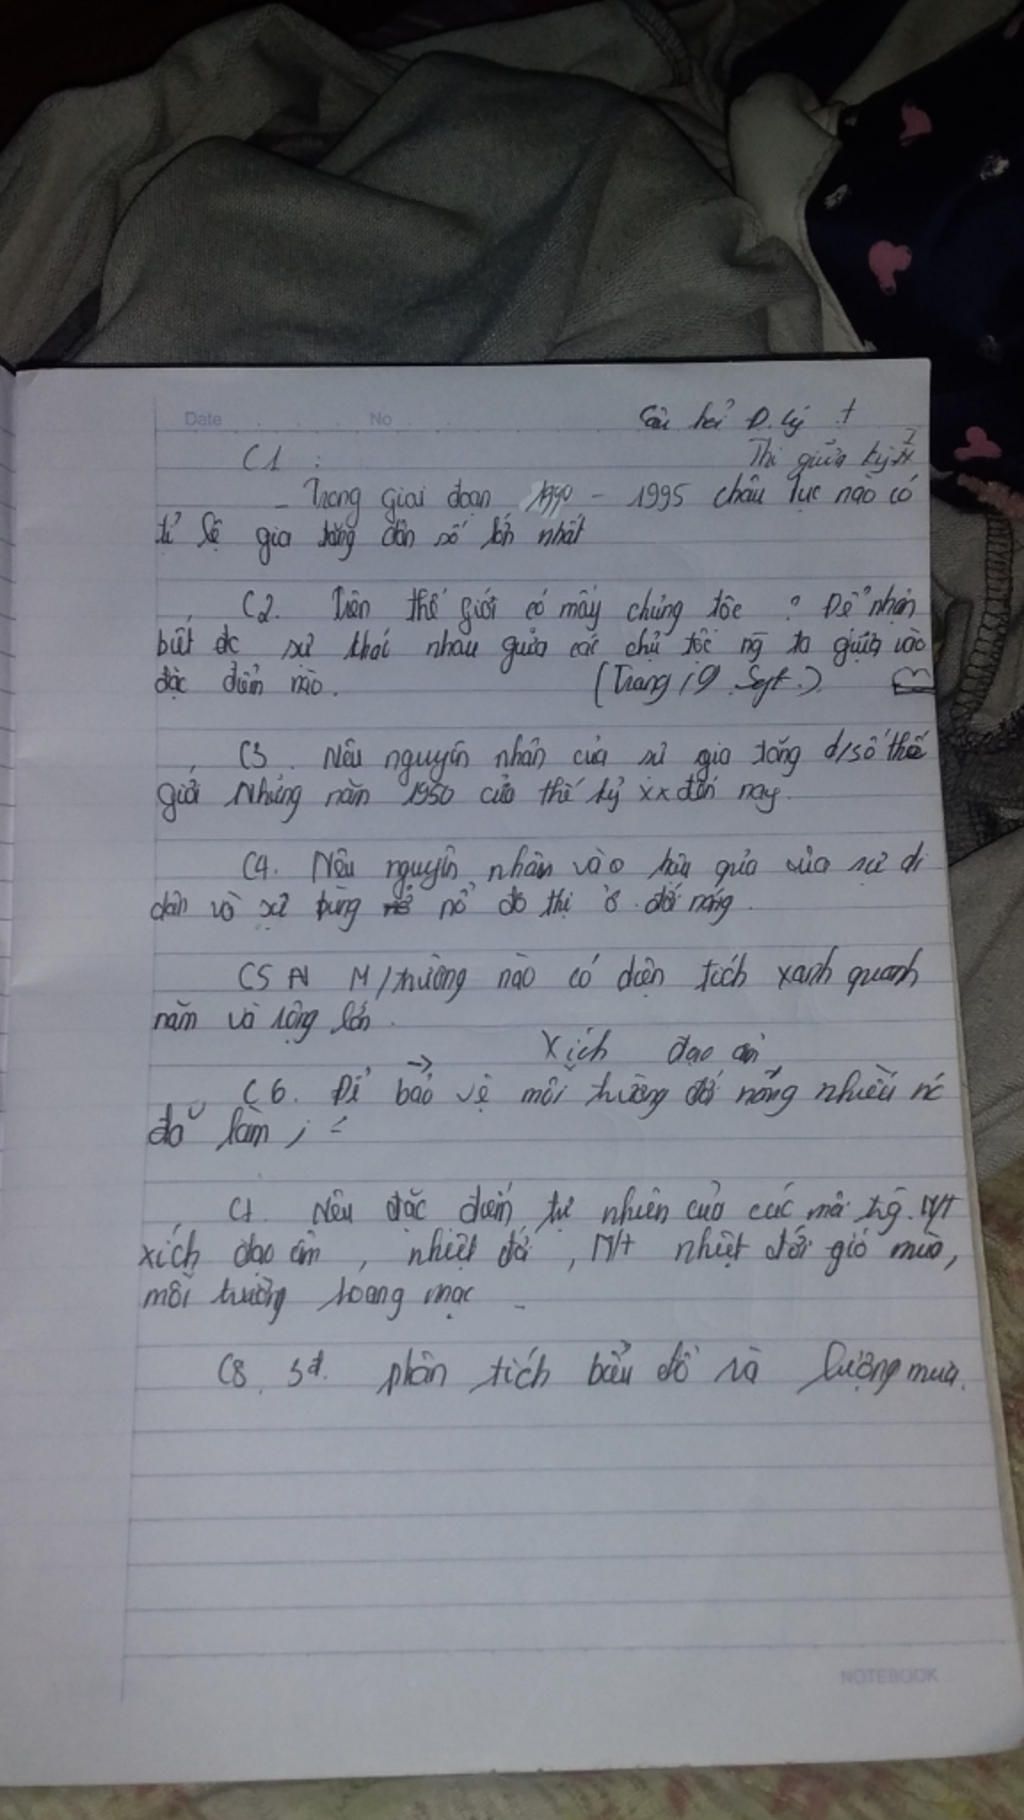 Date No Câu hỏi Đ. lý 7
C1 : Thi giữa kỳ I
_ Trong giai đoạn 1990 - 1995 châu lục nào có
tỉ lệ gia tăng dân số lớn nhất
C2. Trên thế giới có mấy chủng tộc ? Để nhận
biết đc sự khác nhau giữa các chủ tộc ng ta giựa vào
đặc điểm nào. (Trang 19 Sgt.)
C3. Nêu nguyên nhân của sự gia tăng d/số thế
giới Những năm 1950 của thế kỷ XX đến nay.
C4. Nêu nguyên nhân vào hậu qủa của sự di
dân và sự bùng nổ đô thị ở đới nóng.
C5 M/trường nào có diện tích xanh quanh
năm và rộng lớn.
Xích đạo ẩm
C6. Để bảo vệ môi trường đới nóng nhiều nc
đã làm j
C7. Nêu đặc điểm tự nhiên của các môi trg. M/T
xích đạo ẩm, nhiệt đới, M/t nhiệt đới gió mùa,
môi trường hoang mạc
C8. 3đ. phân tích biểu đồ và lượng mưa.
NOTEBOOK